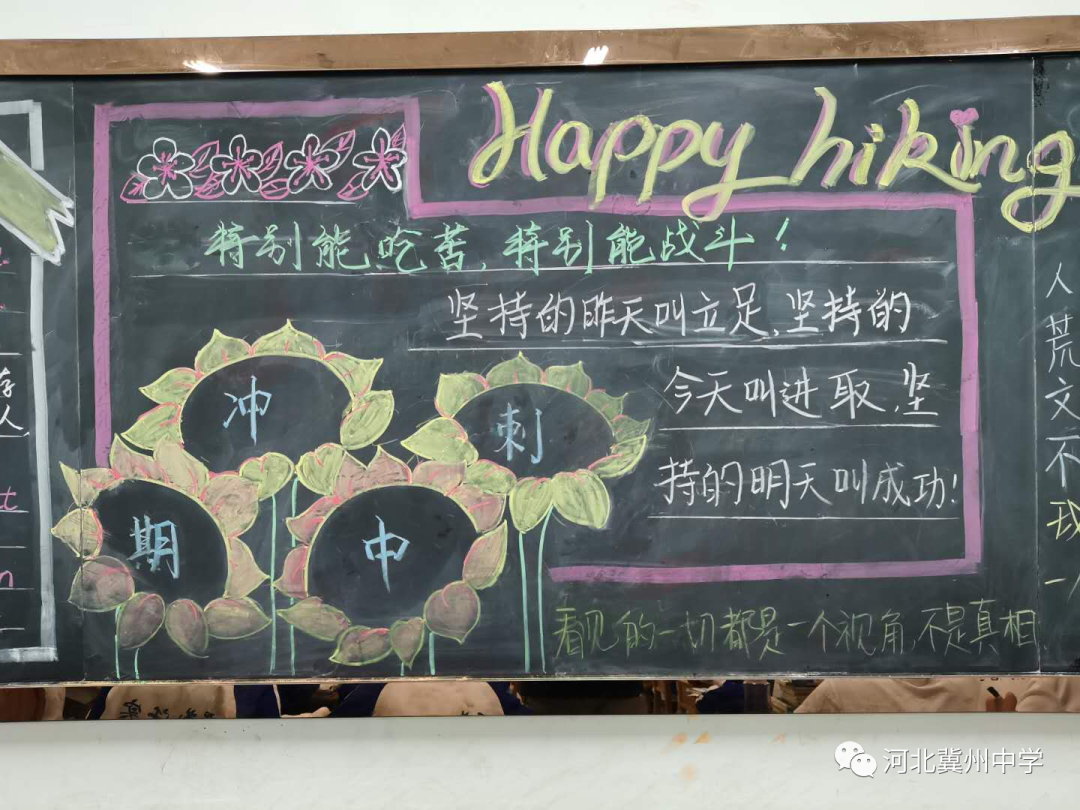 Happy hiking
特别能吃苦,特别能战斗!
坚持的昨天叫立足,坚持的
今天叫进取,坚
持的明天叫成功!
冲刺
期中
看见的一切都是一个视角,不是真相
存
人
t
n
人
荒
文
不
一
河北冀州中学